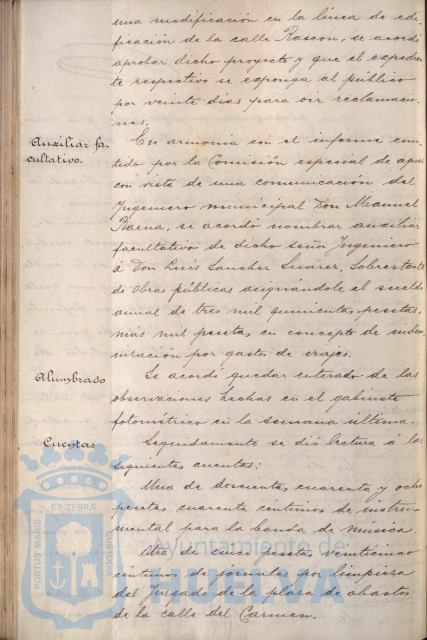 una modificación en la línea de edi-
ficación de la calle Rascon, se acordó
aprobar dicho proyecto y que el expedien-
te respectivo se exponga al público
por veinte días para oir reclamacio-
nes.
Auxiliar fa-
cultativo.
En armonía con el informe emi-
tido por la Comisión especial de aguas
con vista de una comunicación del
Ingeniero municipal Don Manuel
Baena, se acordó nombrar auxiliar
facultativo de dicho señor Ingeniero
á Don Luis Sanchez Suarez, Sobrestante
de Obras públicas asignandole el sueldo
anual de tres mil quinientas pesetas,
mas mil pesetas en concepto de indem-
nización por gastos de viajes.
Alumbrado
Se acordó quedar enterado de las
observaciones hechas en el gabinete
fotométrico en la semana última.
Cuentas
Seguidamente se dió lectura á las
siguientes cuentas:
Una de doscientas cuarenta y ocho
pesetas cuarenta centimos de instru-
mental para la banda de música.
Otra de cinco pesetas veinticinco
centimos de jornales por limpieza
del Juzgado de la plaza de abastos
de la calle del Carmen.
PORTUS MARIS ET TERRÆ CUSTODIA
Ayuntamiento de
HUELVA